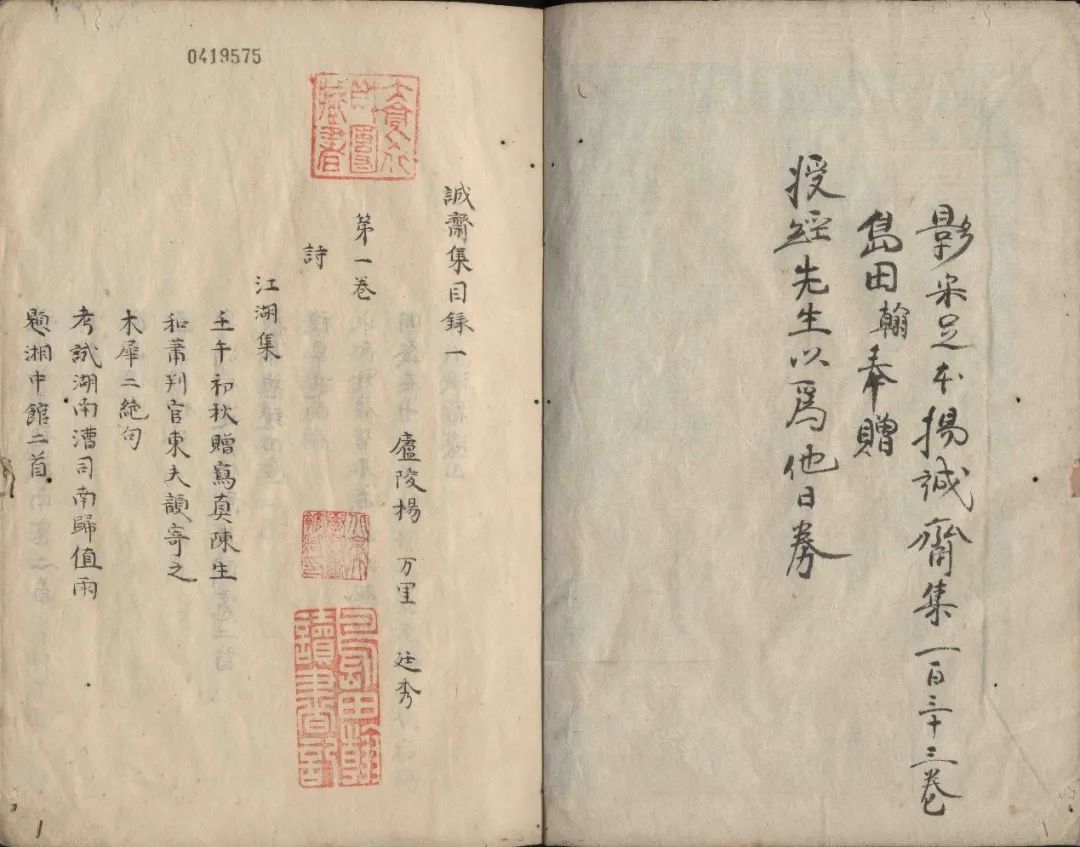 影宋足本楊誠齋集一百三十三卷
島田翰奉贈
授經先生以爲他日券
0419575
誠齋集目録一
廬陵楊 万里 廷秀
第一卷
詩
江湖集
壬午初秋贈寫真陳生
和蕭判官東夫韻寄之
木犀二絶句
考試湖南漕司南歸值雨
題湘中館二首
島田翰讀書記